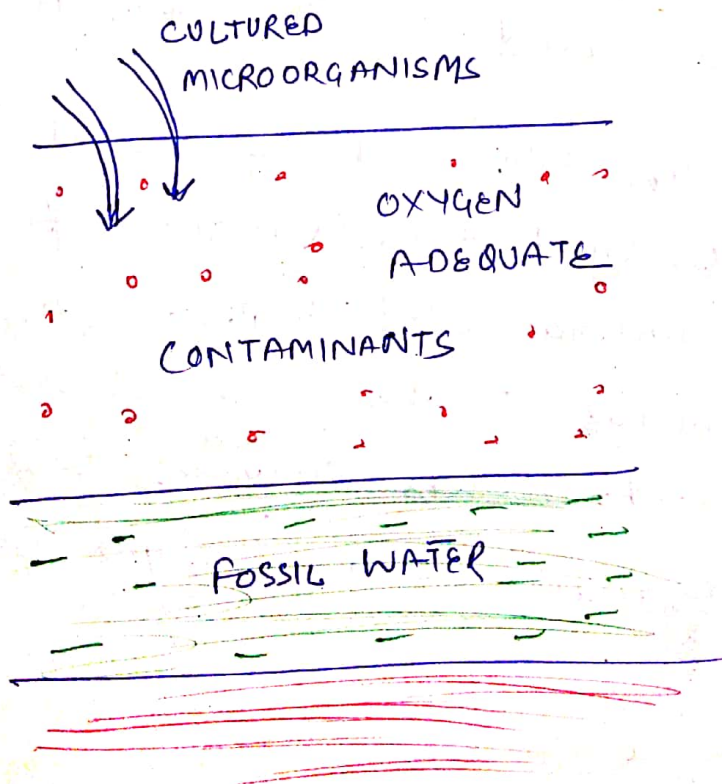 CULTURED
MICROORGANISMS
OXYGEN
ADEQUATE
CONTAMINANTS
FOSSIL WATER